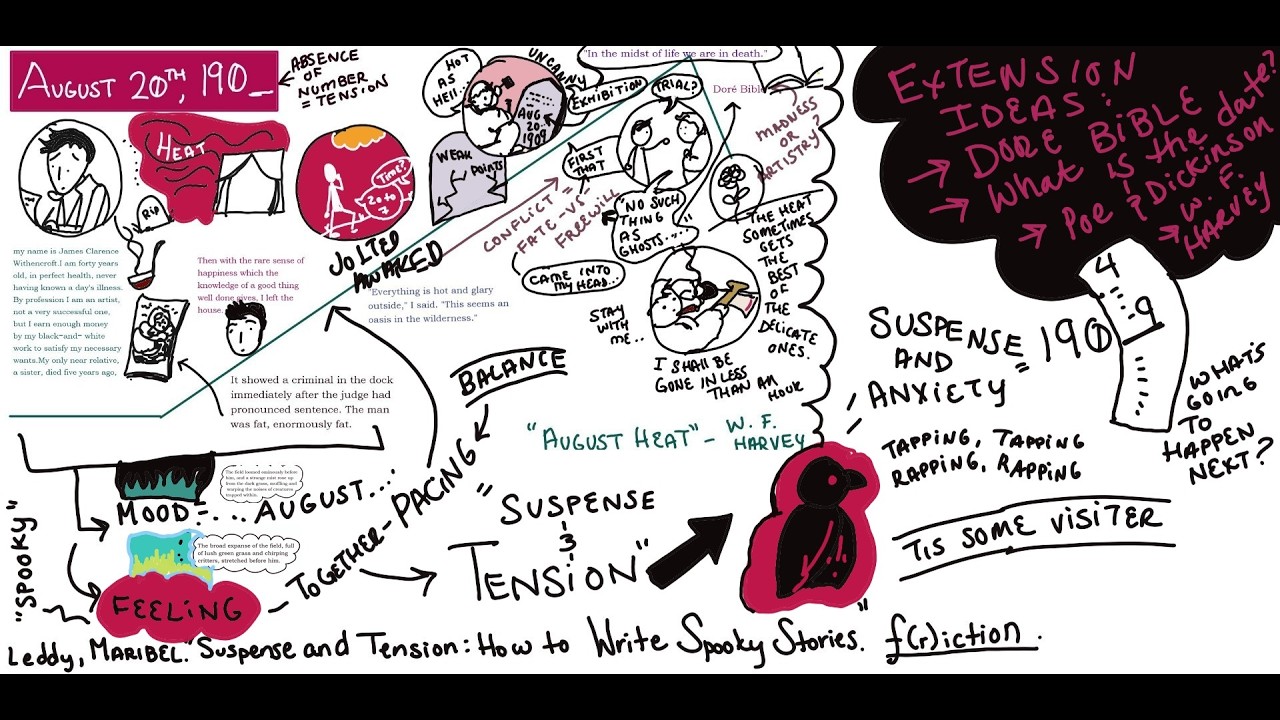 AUGUST 20TH, 190_
ABSENCE
OF
NUMBER
= TENSION
HEAT
RIP
my name is James Clarence
Withencroft.I am forty years
old, in perfect health, never
having known a day's illness.
By profession I am an artist,
not a very successful one,
but I earn enough money
by my black-and- white
work to satisfy my necessary
wants.My only near relative,
a sister, died five years ago,
Then with the rare sense of
happiness which the
knowledge of a good thing
well done gives, I left the
house.
It showed a criminal in the dock
immediately after the judge had
pronounced sentence. The man
was fat, enormously fat.
Time?
20 to
7
JOLTED
AWAKED
"Everything is hot and glary
outside," I said. "This seems an
oasis in the wilderness."
HOT
AS
HELL...
UNCANNY
AUG
20.
1909
EXHIBITION
WEAK
POINTS
CONFLICT =
FATE -VS-
FREEWILL
FIRST
THAT
CAME INTO
MY HEAD...
"In the midst of life we are in death."
TRIAL?
Doré Bible
MADNESS
OR
ARTISTRY?
"NO SUCH
THING
AS
GHOSTS..."
STAY
WITH
ME..
I SHALL BE
GONE IN LESS
THAN AN
HOUR
THE HEAT
SOMETIMES
GETS
THE
BEST
OF
THE
DELICATE
ONES.
EXTENSION
IDEAS:
→ DORE BIBLE
→ What is the date?
→ Poe & Dickinson
→ W. F.
HARVEY
SUSPENSE
AND
ANXIETY
= 190
4
9
WHAT'S
GOING
TO
HAPPEN
NEXT?
"AUGUST HEAT" - W. F.
HARVEY
TAPPING, TAPPING
RAPPING, RAPPING
TIS SOME VISITER
BALANCE
TOGETHER - PACING
"SUSPENSE
&
TENSION"
"SPOOKY"
The field loomed ominously before
him, and a strange mist rose up
from the dark grass, muffling and
warping the noises of creatures
trapped within.
MOOD = ... AUGUST...
The broad expanse of the field, full
of lush green grass and chirping
critters, stretched before him.
FEELING
Leddy, MARIBEL. "Suspense and Tension: How to Write Spooky Stories." f(r)iction.